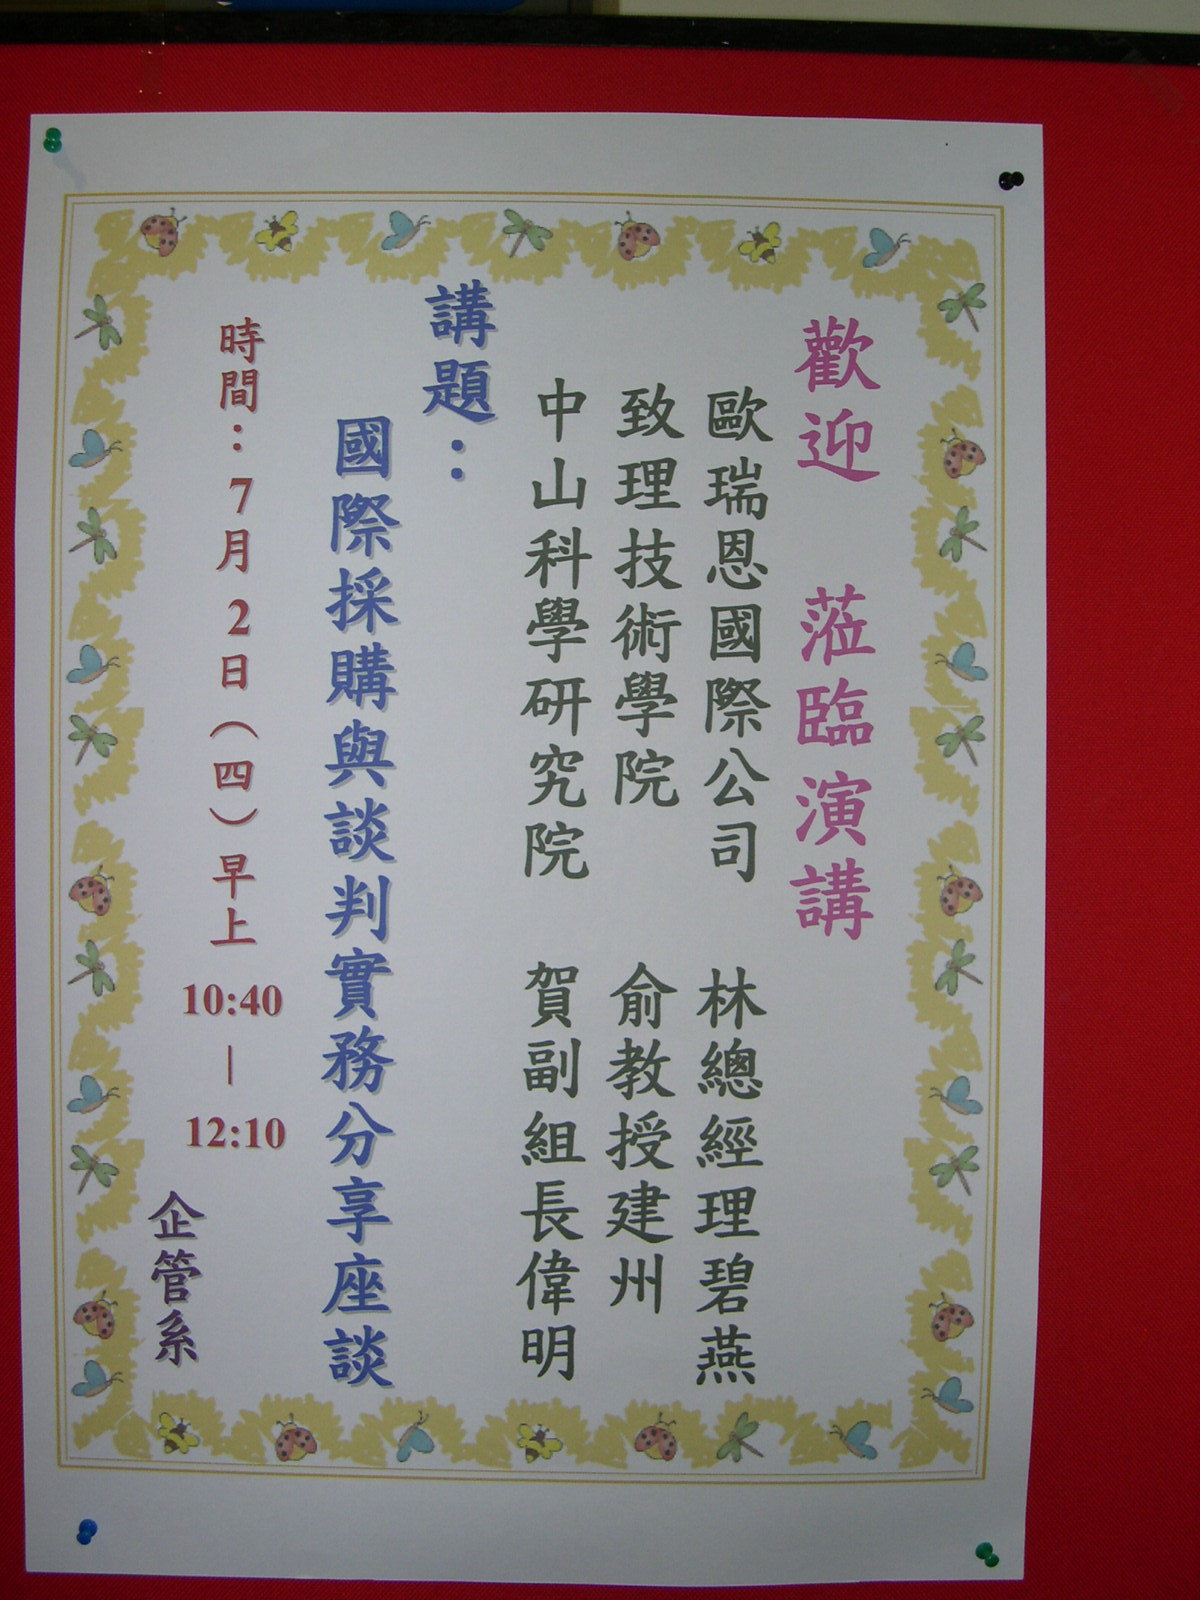 歡迎 蒞臨演講
歐瑞恩國際公司 林總經理碧燕
致理技術學院 俞教授建州
中山科學研究院 賀副組長偉明
講題：
國際採購與談判實務分享座談
時間：7月2日（四）早上10:40—12:10
企管系